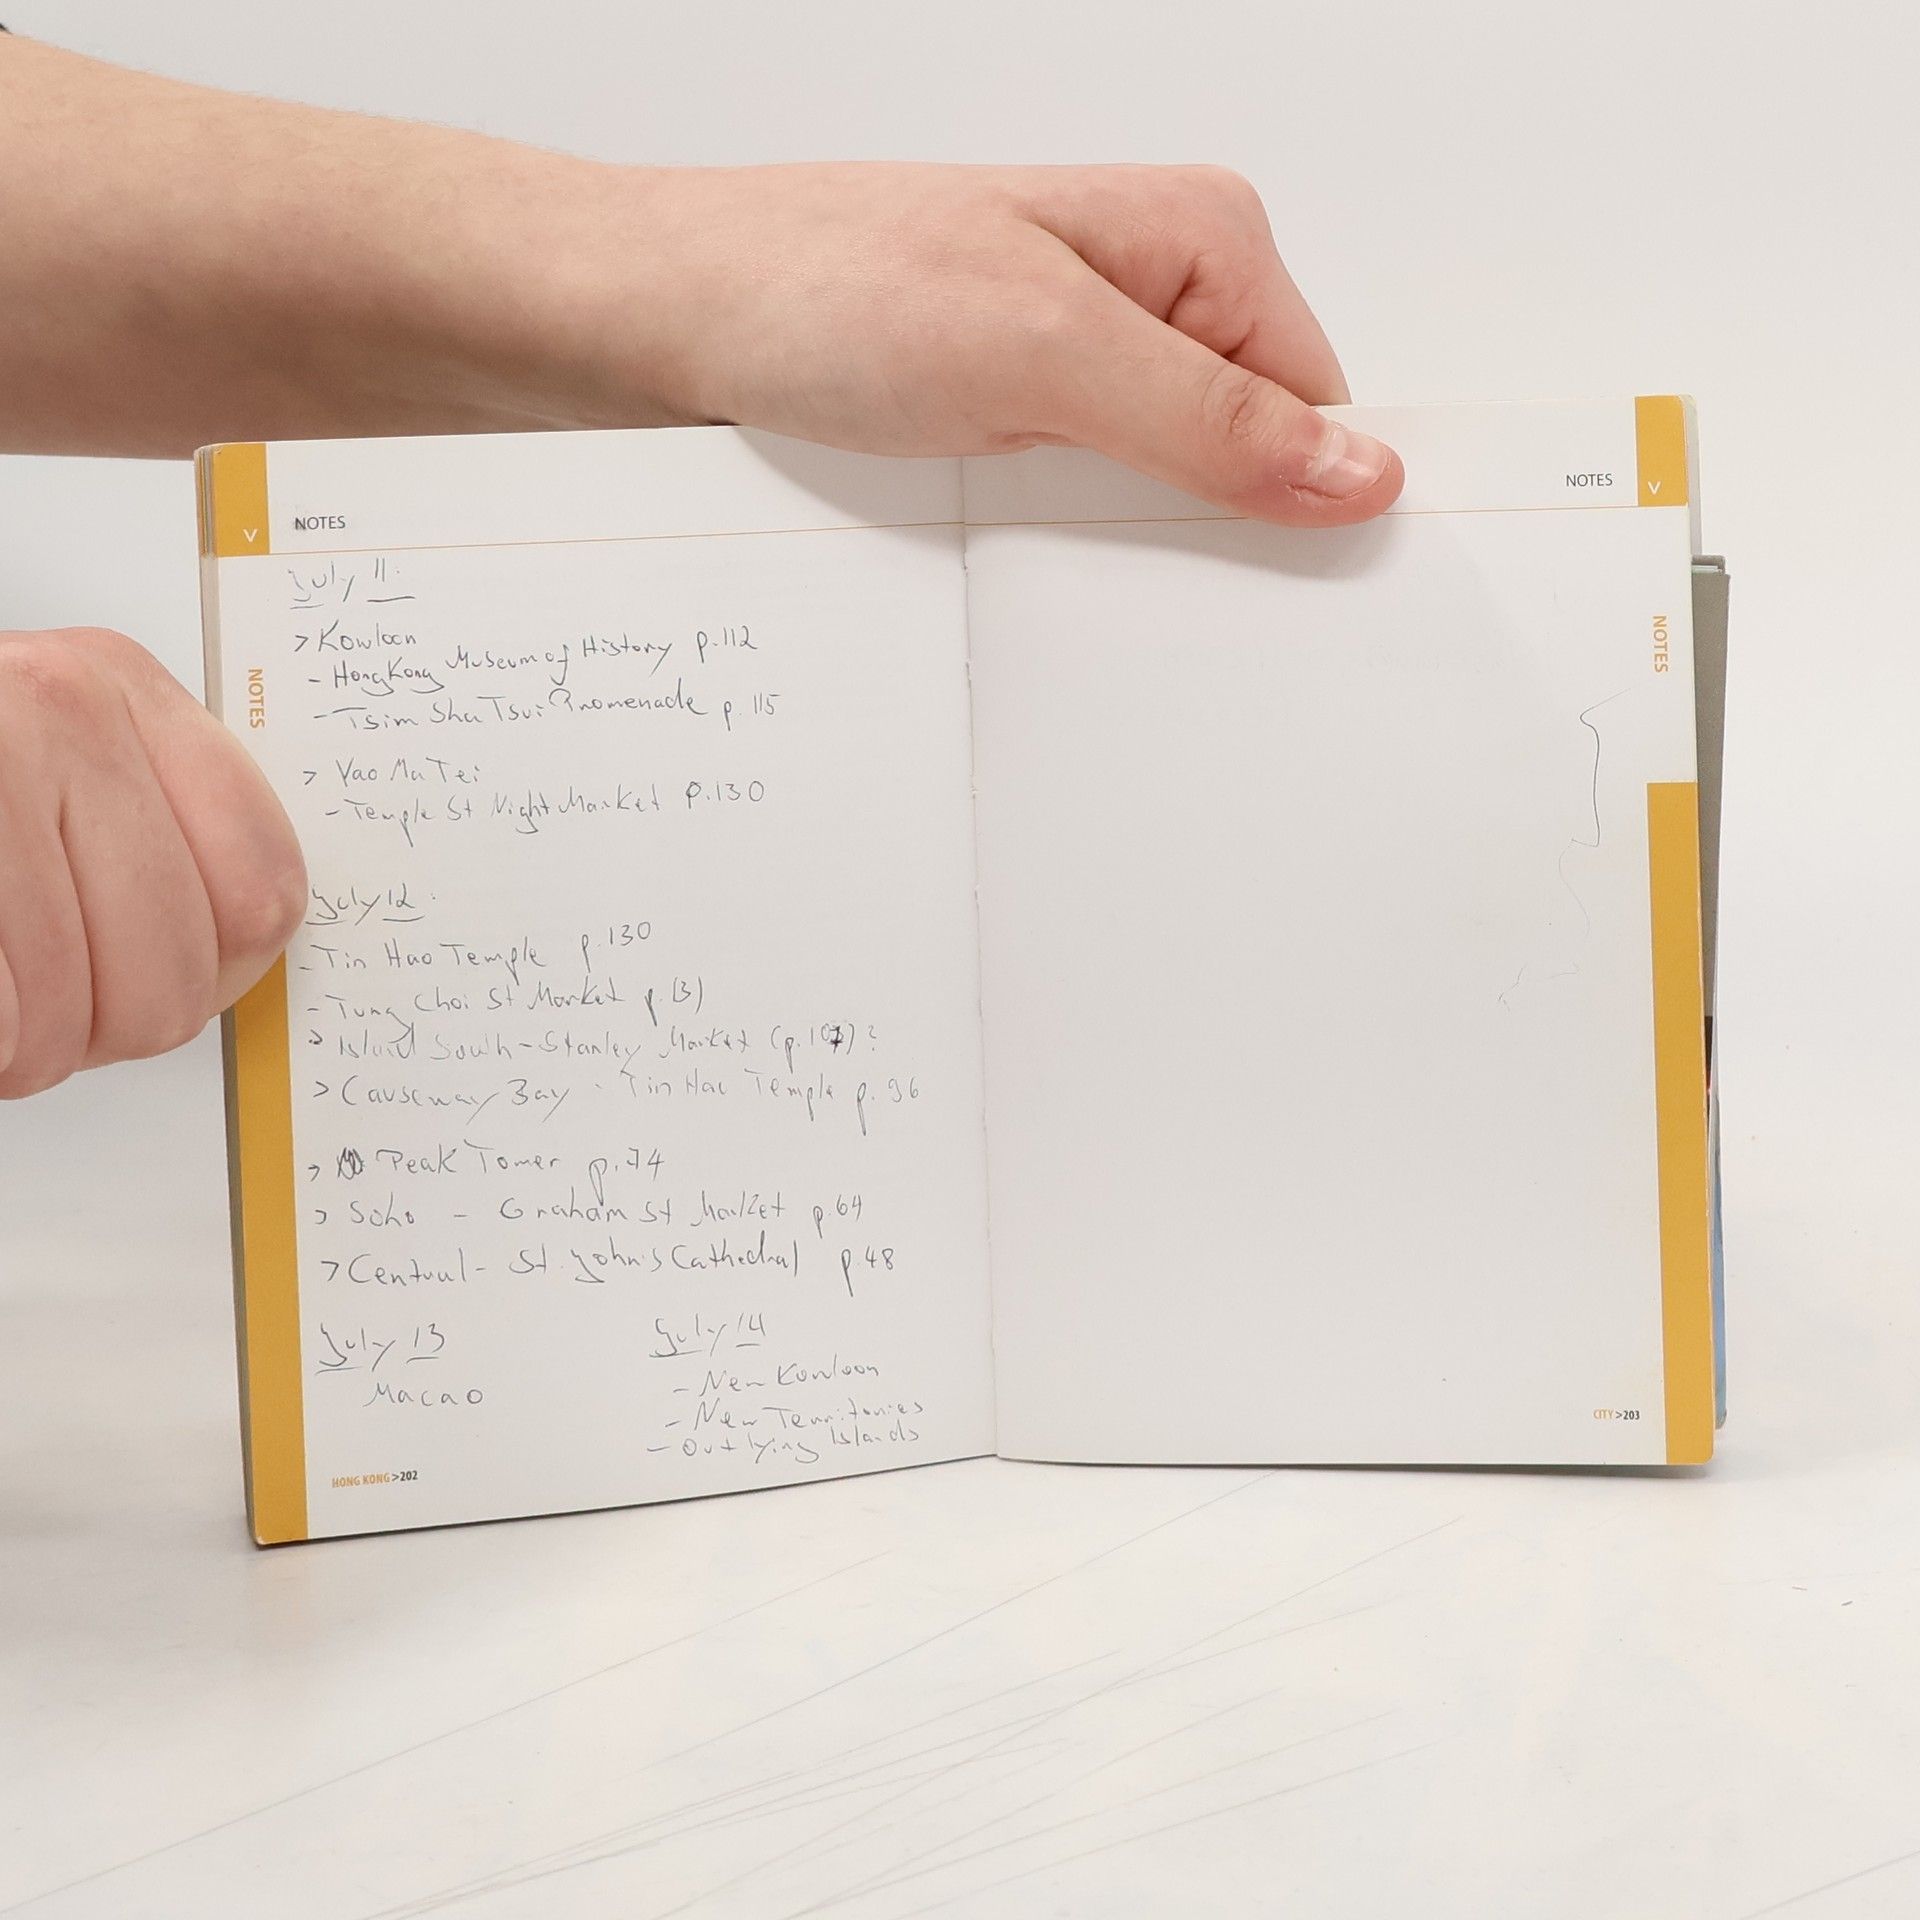 NOTES
July 11:
> Kowloon
- Hong Kong Museum of History p.112
- Tsim Sha Tsui Promenade p.115
> Yao Ma Tei
- Temple St Night Market p.130
July 12:
- Tin Hao Temple p.130
- Tung Choi St Market p.131
> Island South - Stanley Market (p.107)?
> Causeway Bay - Tin Hao Temple p.96
> Peak Tower p.74
> Soho - Graham St Market p.64
> Central - St. John's Cathedral p.48
July 13
Macao
July 14
- New Kowloon
- New Territories
- Outlying Islands
HONG KONG >202
NOTES
NOTES
NOTES
CITY >203